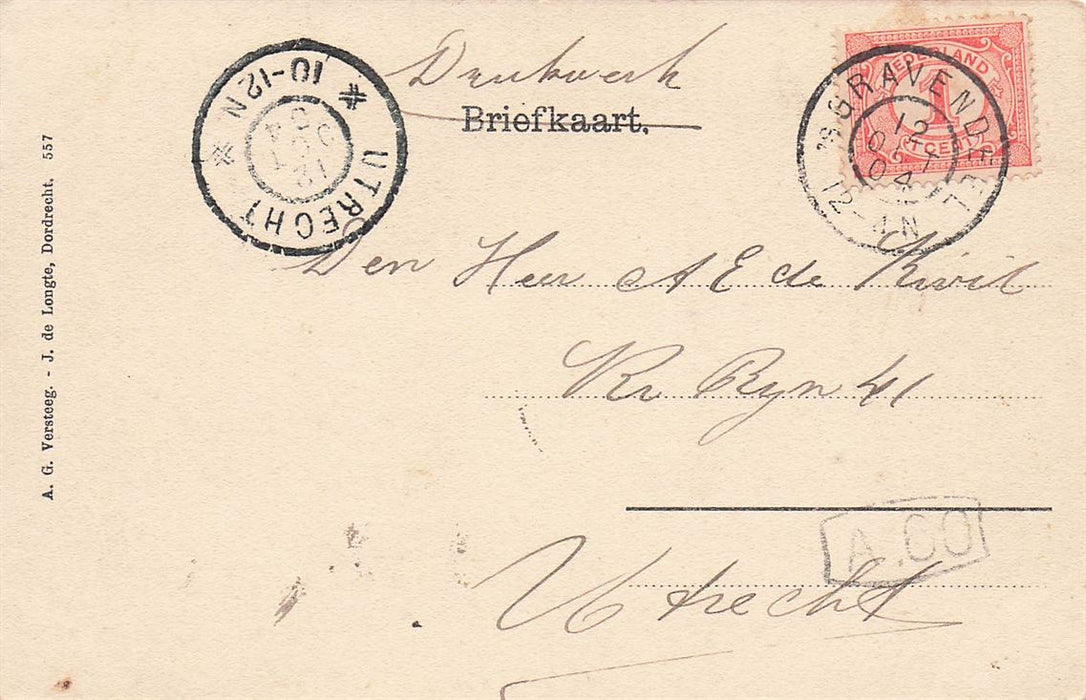 Drukwerk
Briefkaart.
NEDERLAND
1
CENT
'S GRAVENDEEL
12 OCT 04
12-4N
UTRECHT
12 OCT 04
10-12N
Den Heer A E de Kwit
Kr Ryn 41
Utrecht
A. G. Versteeg. - J. de Longte, Dordrecht. 557